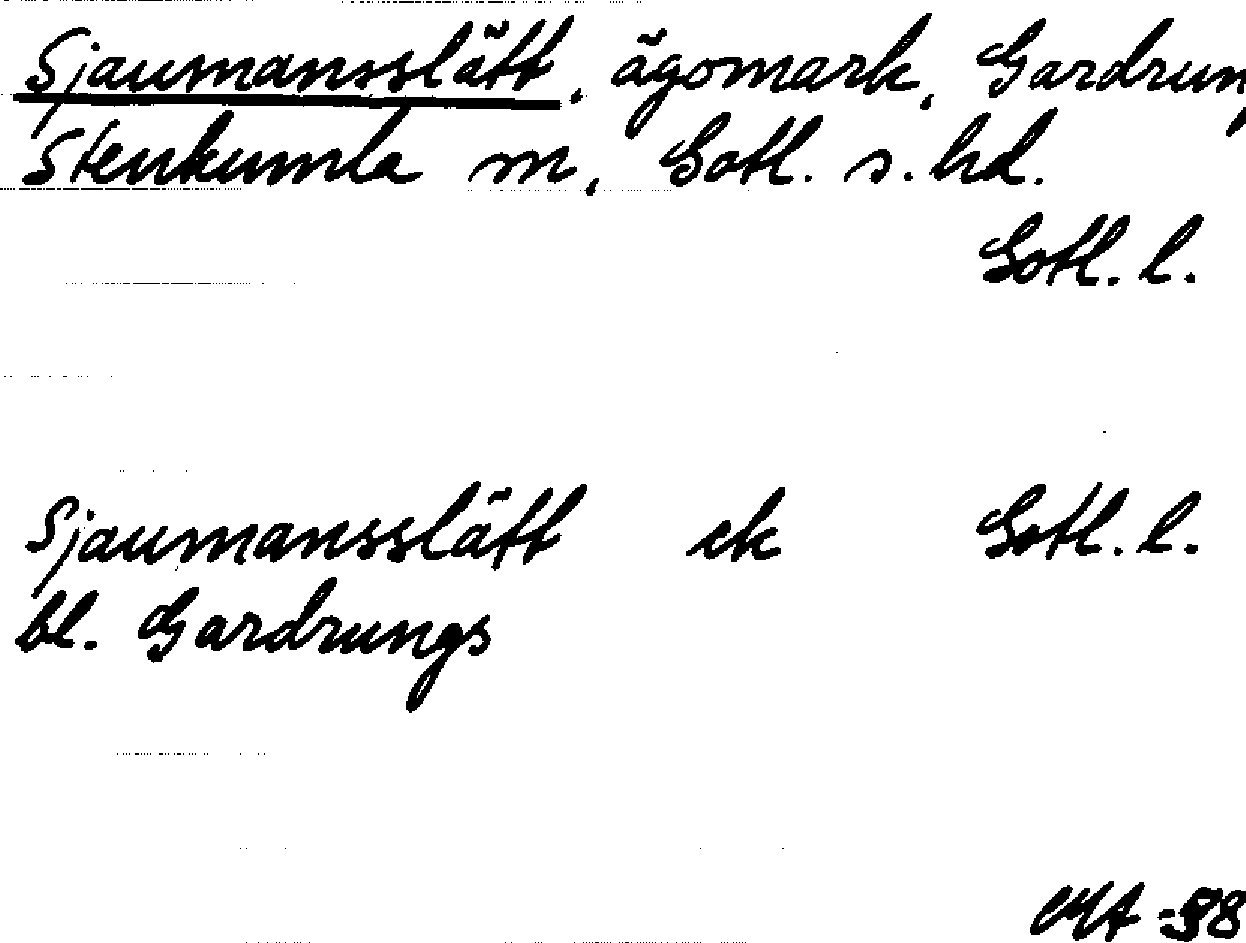 Sjaumansslätt, ägomark, Gardrun
Stenkumla sn, Gotl. s. hd.
Gotl. l.
Sjaumansslätt ek Gotl. l.
bl. Gardrungs